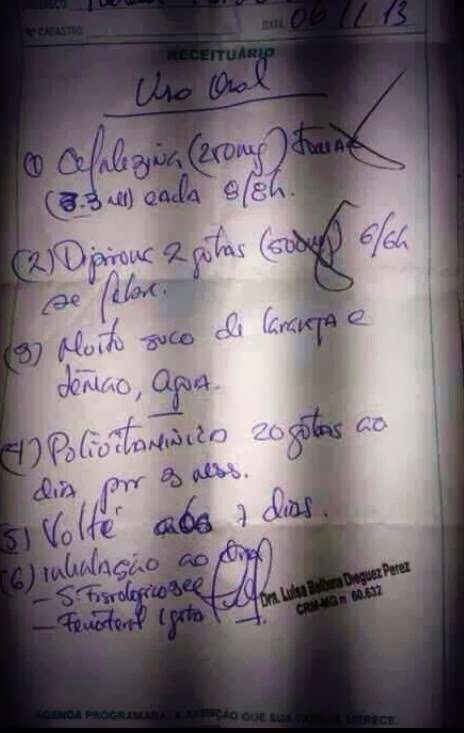 DATA 06/11/13
Nº CADASTRO
RECEITUÁRIO
Uso Oral
(1) Cefalexina (250mg) Tomar
(3.3 ml) cada 8/8h.
(2) Dipirona 2 gotas (500mg) 6/6h
se febre.
(3) Muito suco de laranja e
água.
(4) Polivitaminico 20 gotas ao
dia por 3 mess.
(5) Volte 7 dias.
(6) inhalação ao
- S. Fisiologico 5cc
- Fenoterol 1 gota
Dra. Luisa Dieguez Perez
CRM-MG nº 60.632
AGENDA PROGRAMADA: A ATENÇÃO QUE SUA FAMÍLIA MERECE.